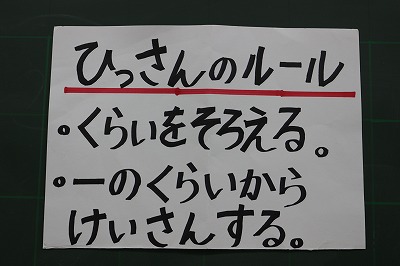 ひっさんのルール
・くらいをそろえる。
・一のくらいから
けいさんする。